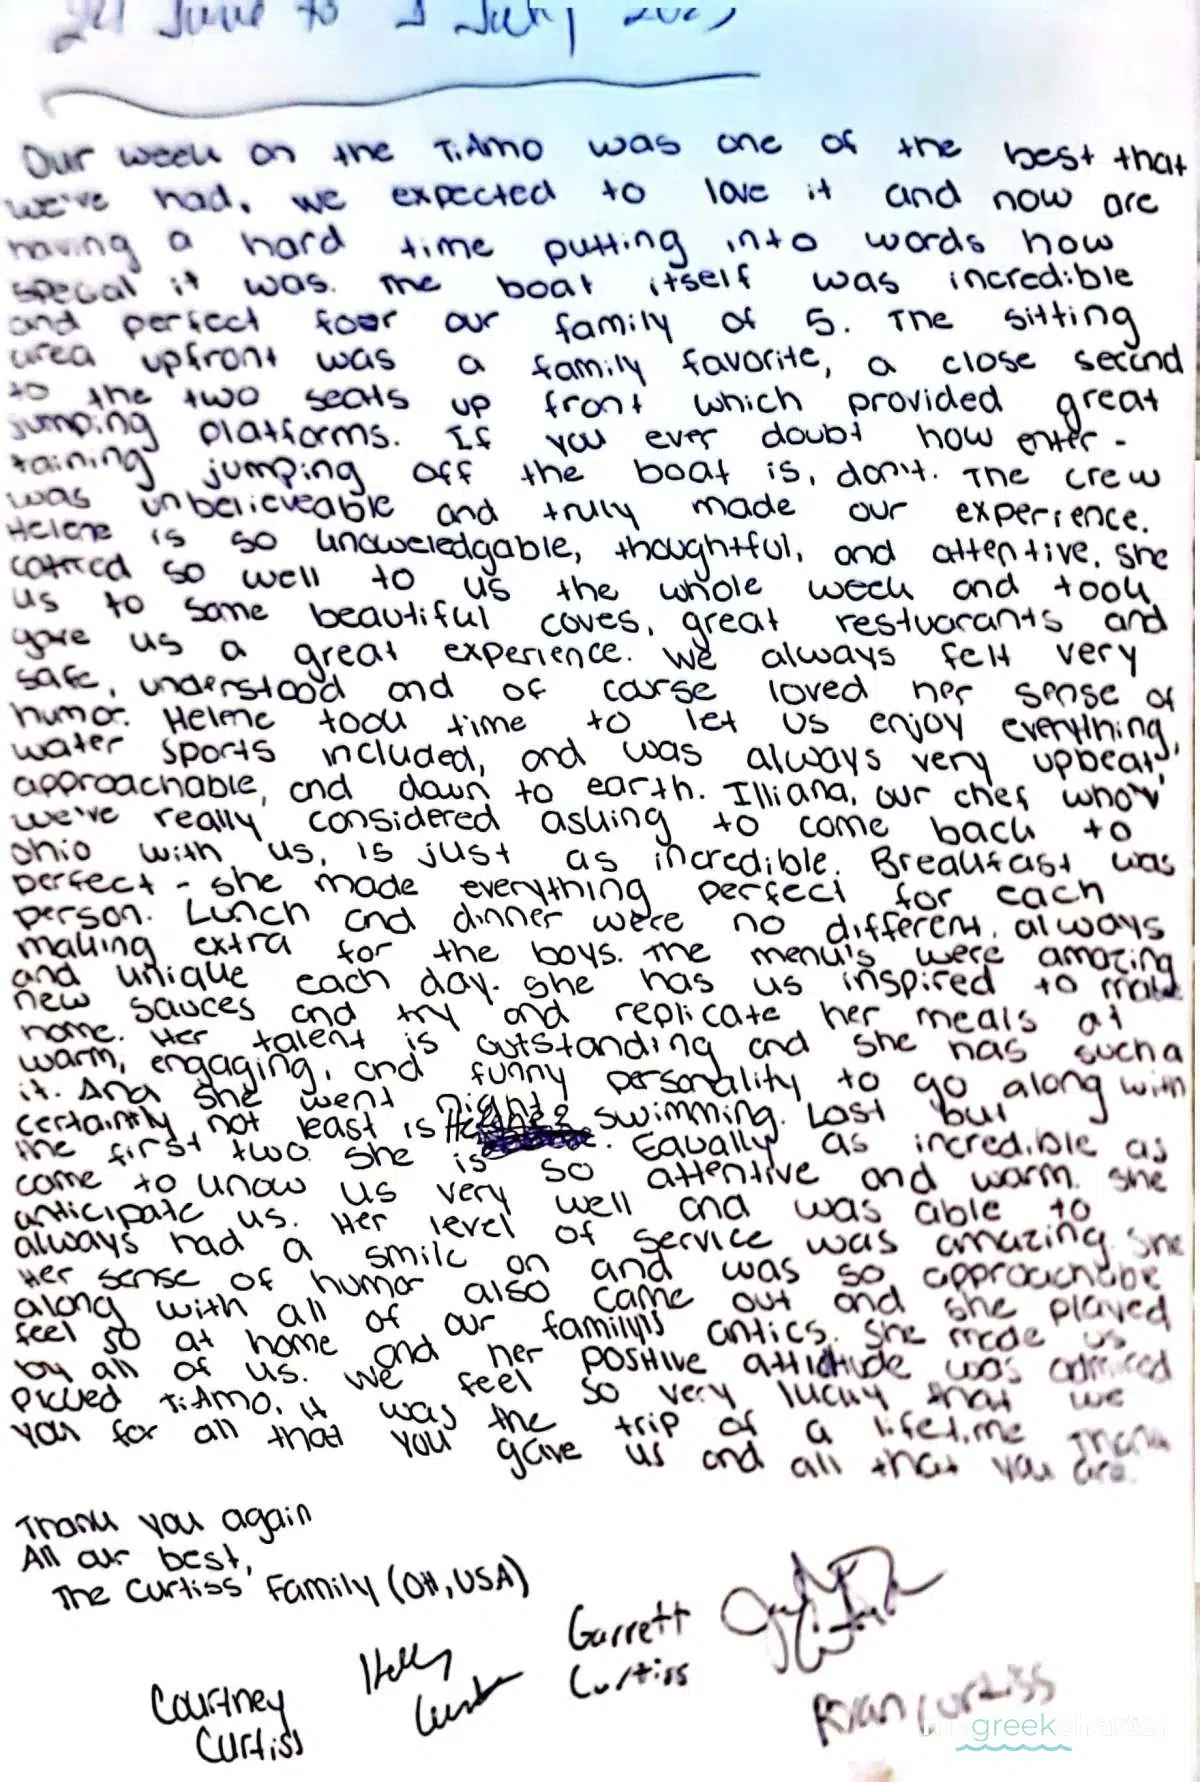 24 June to 1 July
Our week on the TiAmo was one of the best that
we've had. we expected to love it and now are
having a hard time putting into words how
special it was. The boat itself was incredible
and perfect foor our family of 5. The sitting
area upfront was a family favorite, a close second
to the two seats up front which provided great
jumping platforms. If you ever doubt how enter-
taining jumping off the boat is, don't. The crew
was unbelieveable and truly made our experience.
Helene is so knoweledgable, thoughtful, and attentive. she
catered so well to us the whole week and took
us to some beautiful coves, great restuarants and
gave us a great experience. We always felt very
safe, understood and of carse loved her sense of
humor. Helene took time to let us enjoy everything,
water sports included, and was always very upbeat,
approachable, and down to earth. Illiana, our chef who
we've really considered asking to come back to
Ohio with us, is just as incredible. Breakfast was
perfect - she made everything perfect for each
person. Lunch and dinner were no different, always
making extra for the boys. The menu's were amazing
and unique each day. She has us inspired to make
new sauces and try and replicate her meals at
home. Her talent is outstanding and she has such a
warm, engaging, and funny personality to go along with
it. And she went night swimming. Last but
certaintly not least is
the first two. she is so attentive and warm. she
Equally as incredible as
came to know us very well and was able to
anticipate us. Her level of service was amazing. She
always had a smile on and was so approachable
Her sense of humor also came out and she played
along with all of our family's antics. She made us
feel so at home and her positive attictude was admired
by all of us. We feel so very lucky that we
picked TiAmo. it was the trip of a lifetime Thank
you for all that you gave us and all that you are.
Thank you again
All our best,
The Curtiss' Family (OH, USA)
Garrett
Curtiss
Holly
Courtney
Curtiss
Ryan Curtiss
mygreekcharter